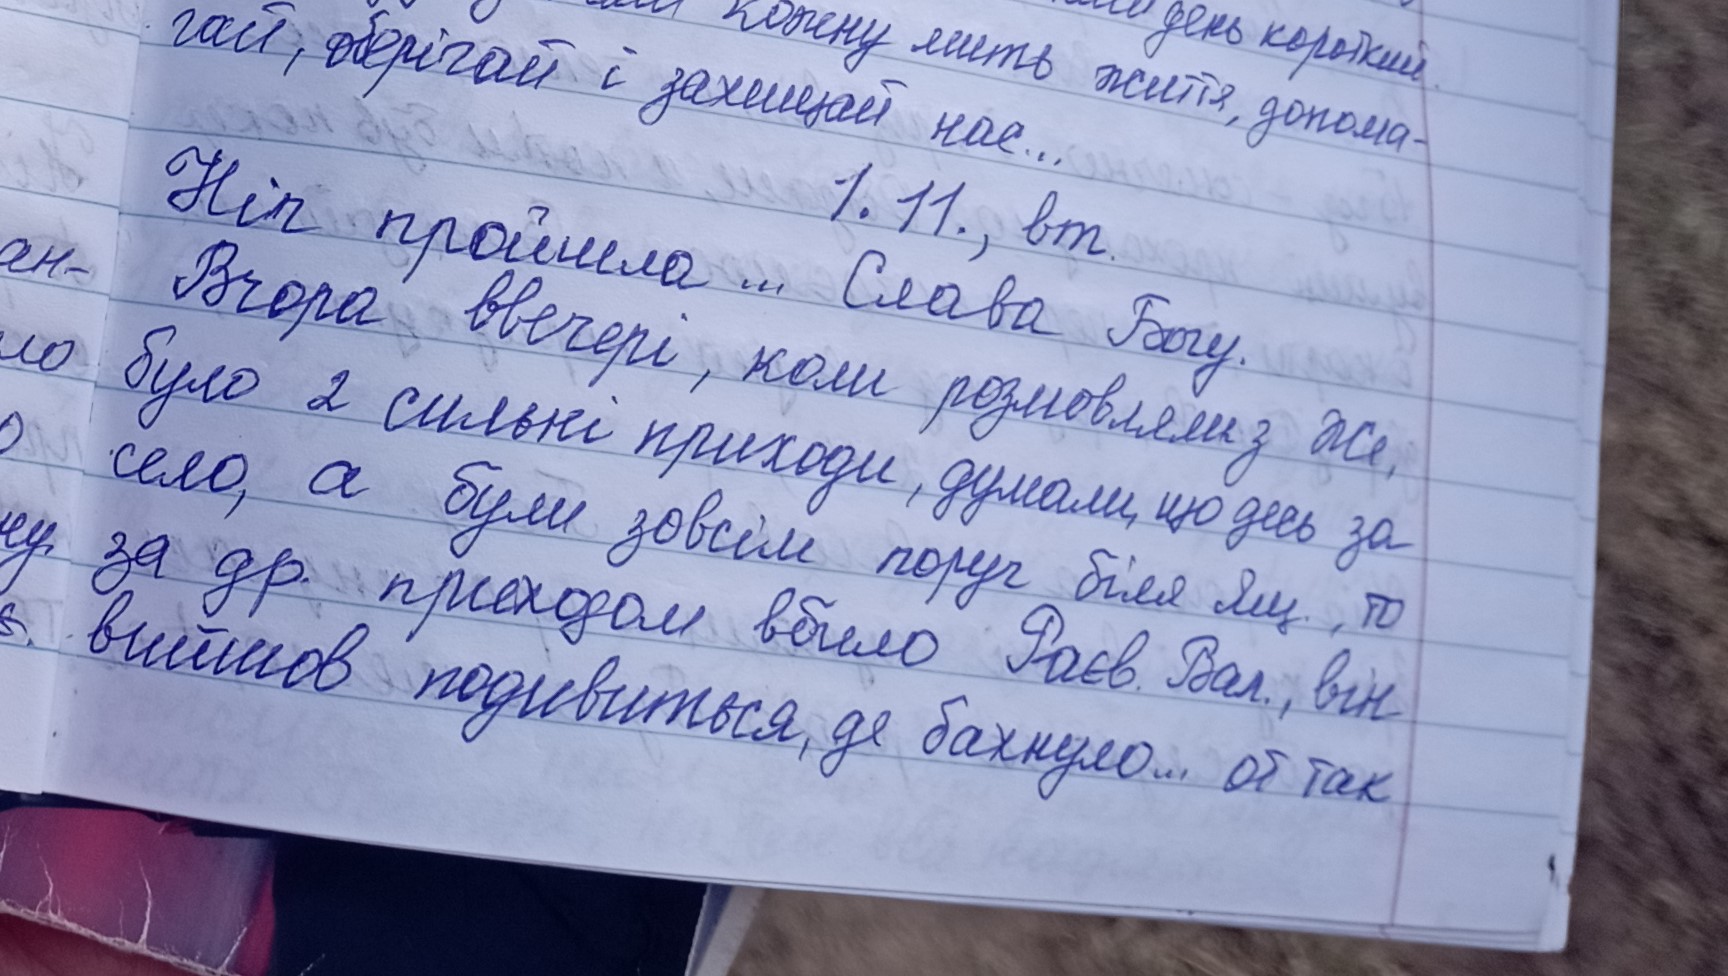 день короткий.
кожну мить життя, допома-
гай, оберігай і захищай нас...
1.11., вт.
Ніч пройшла... Слава Богу.
Вчора ввечері, коли розмовляли з Же,
було 2 сильні приходи, думали, що десь за
село, а були зовсім поруч біля Ящ., то
за др. приходом вбило Раєв. Вал., він
вийшов подивиться, де бахнуло... от так
ан-
ло
о
ну